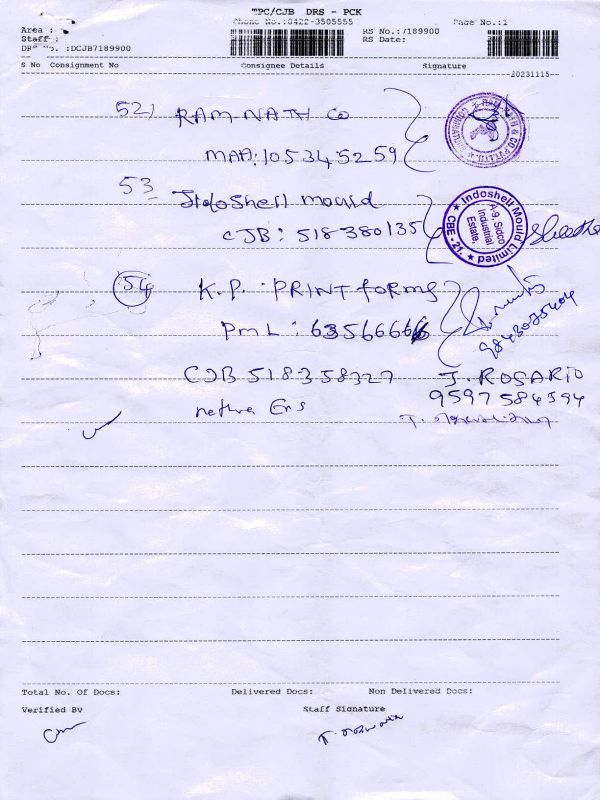 TPC/CJB DRS - PCK
Phone No.:0422-3505555 Page No.:1
Area : RS No.:7189900
Staff : RS Date:
DRS No. :DCJB7189900
S No Consignment No Consignee Details Signature
20231115
521 RAMNATH Co
MAA:105345259
53 Indoshell mould
CJB: 518380135
Indoshell Mould Limited
A-9, Sidco
Industrial
Estate,
CBE - 21.
54 K.P. PRINT forms
PML: 63566666
9843025404
CJB 518358327 J. ROSARIO
nethra Ens 9597584594
Total No. Of Docs: Delivered Docs: Non Delivered Docs:
Verified By Staff Signature